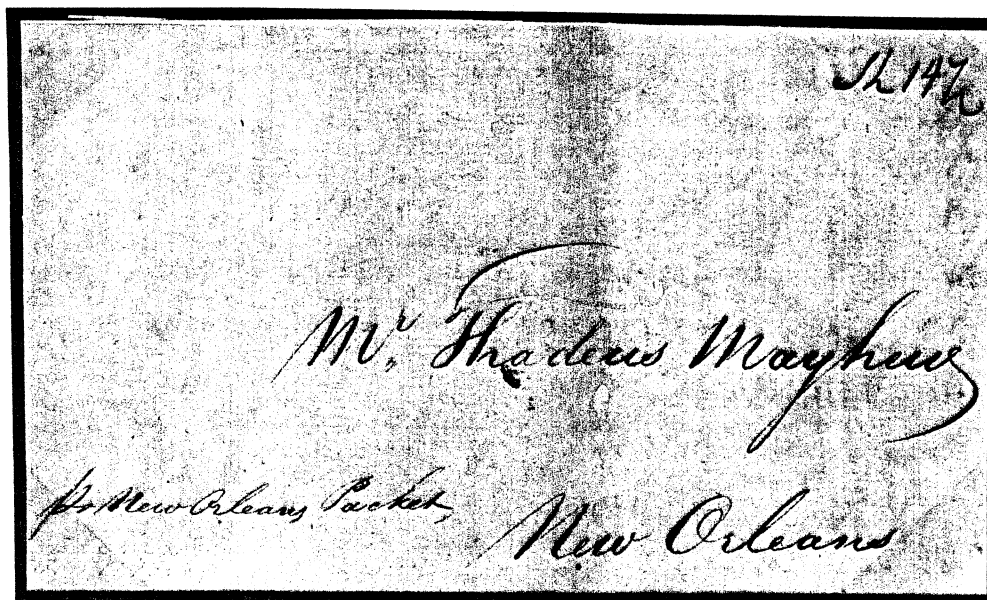 Sh 14½
Mr. Thadeus Mayhew
pr New Orleans Packet,
New Orleans